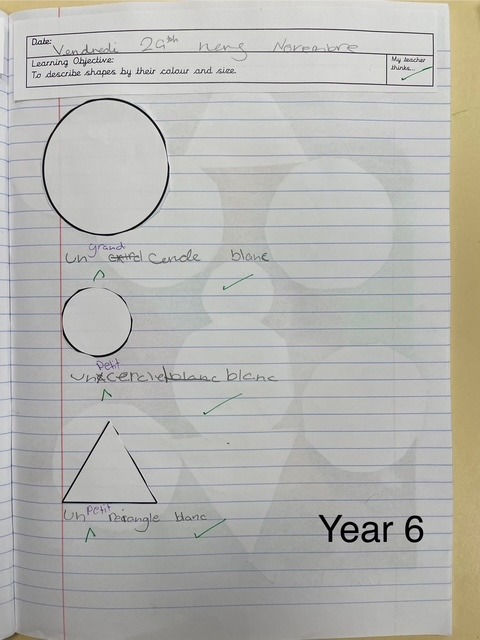 Date: Vendredi 29th neng Novembre
Learning Objective:
To describe shapes by their colour and size.
My teacher
thinks...
grand
un cercle blanc
Petit
un cercle blanc blanc
Petit
un blanc
Year 6